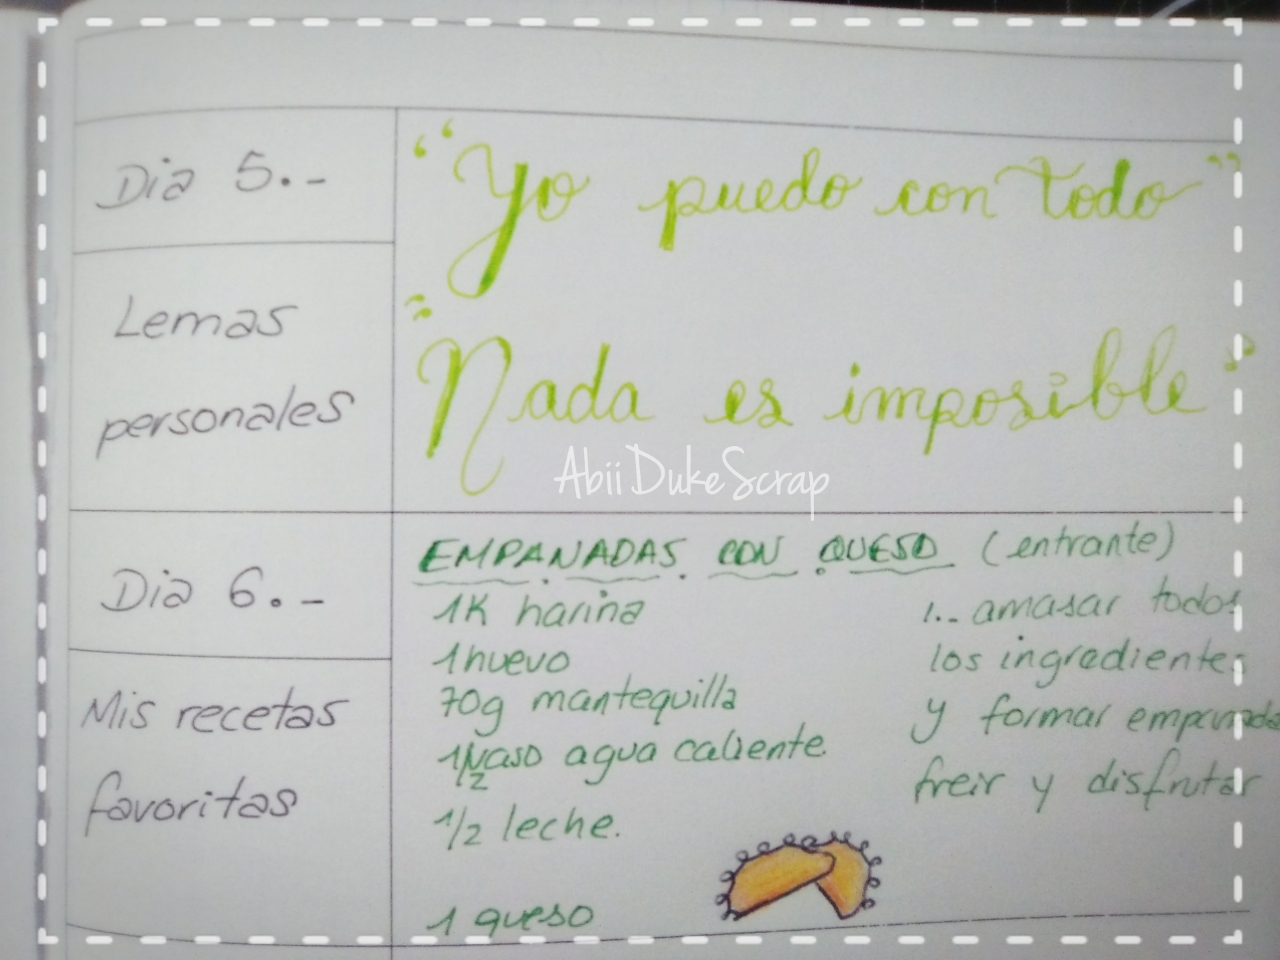 Dia 5.-
"Yo puedo con todo"
Lemas
personales
"Nada es imposible"
Abii Duke Scrap
Dia 6.-
Mis recetas
favoritas
EMPANADAS CON QUESO (entrante)
1K harina
1 huevo
70g mantequilla
1/2 vaso agua caliente
1/2 leche.
1 queso
1.- amasar todos
los ingredientes
y formar empanada
freir y disfrutar